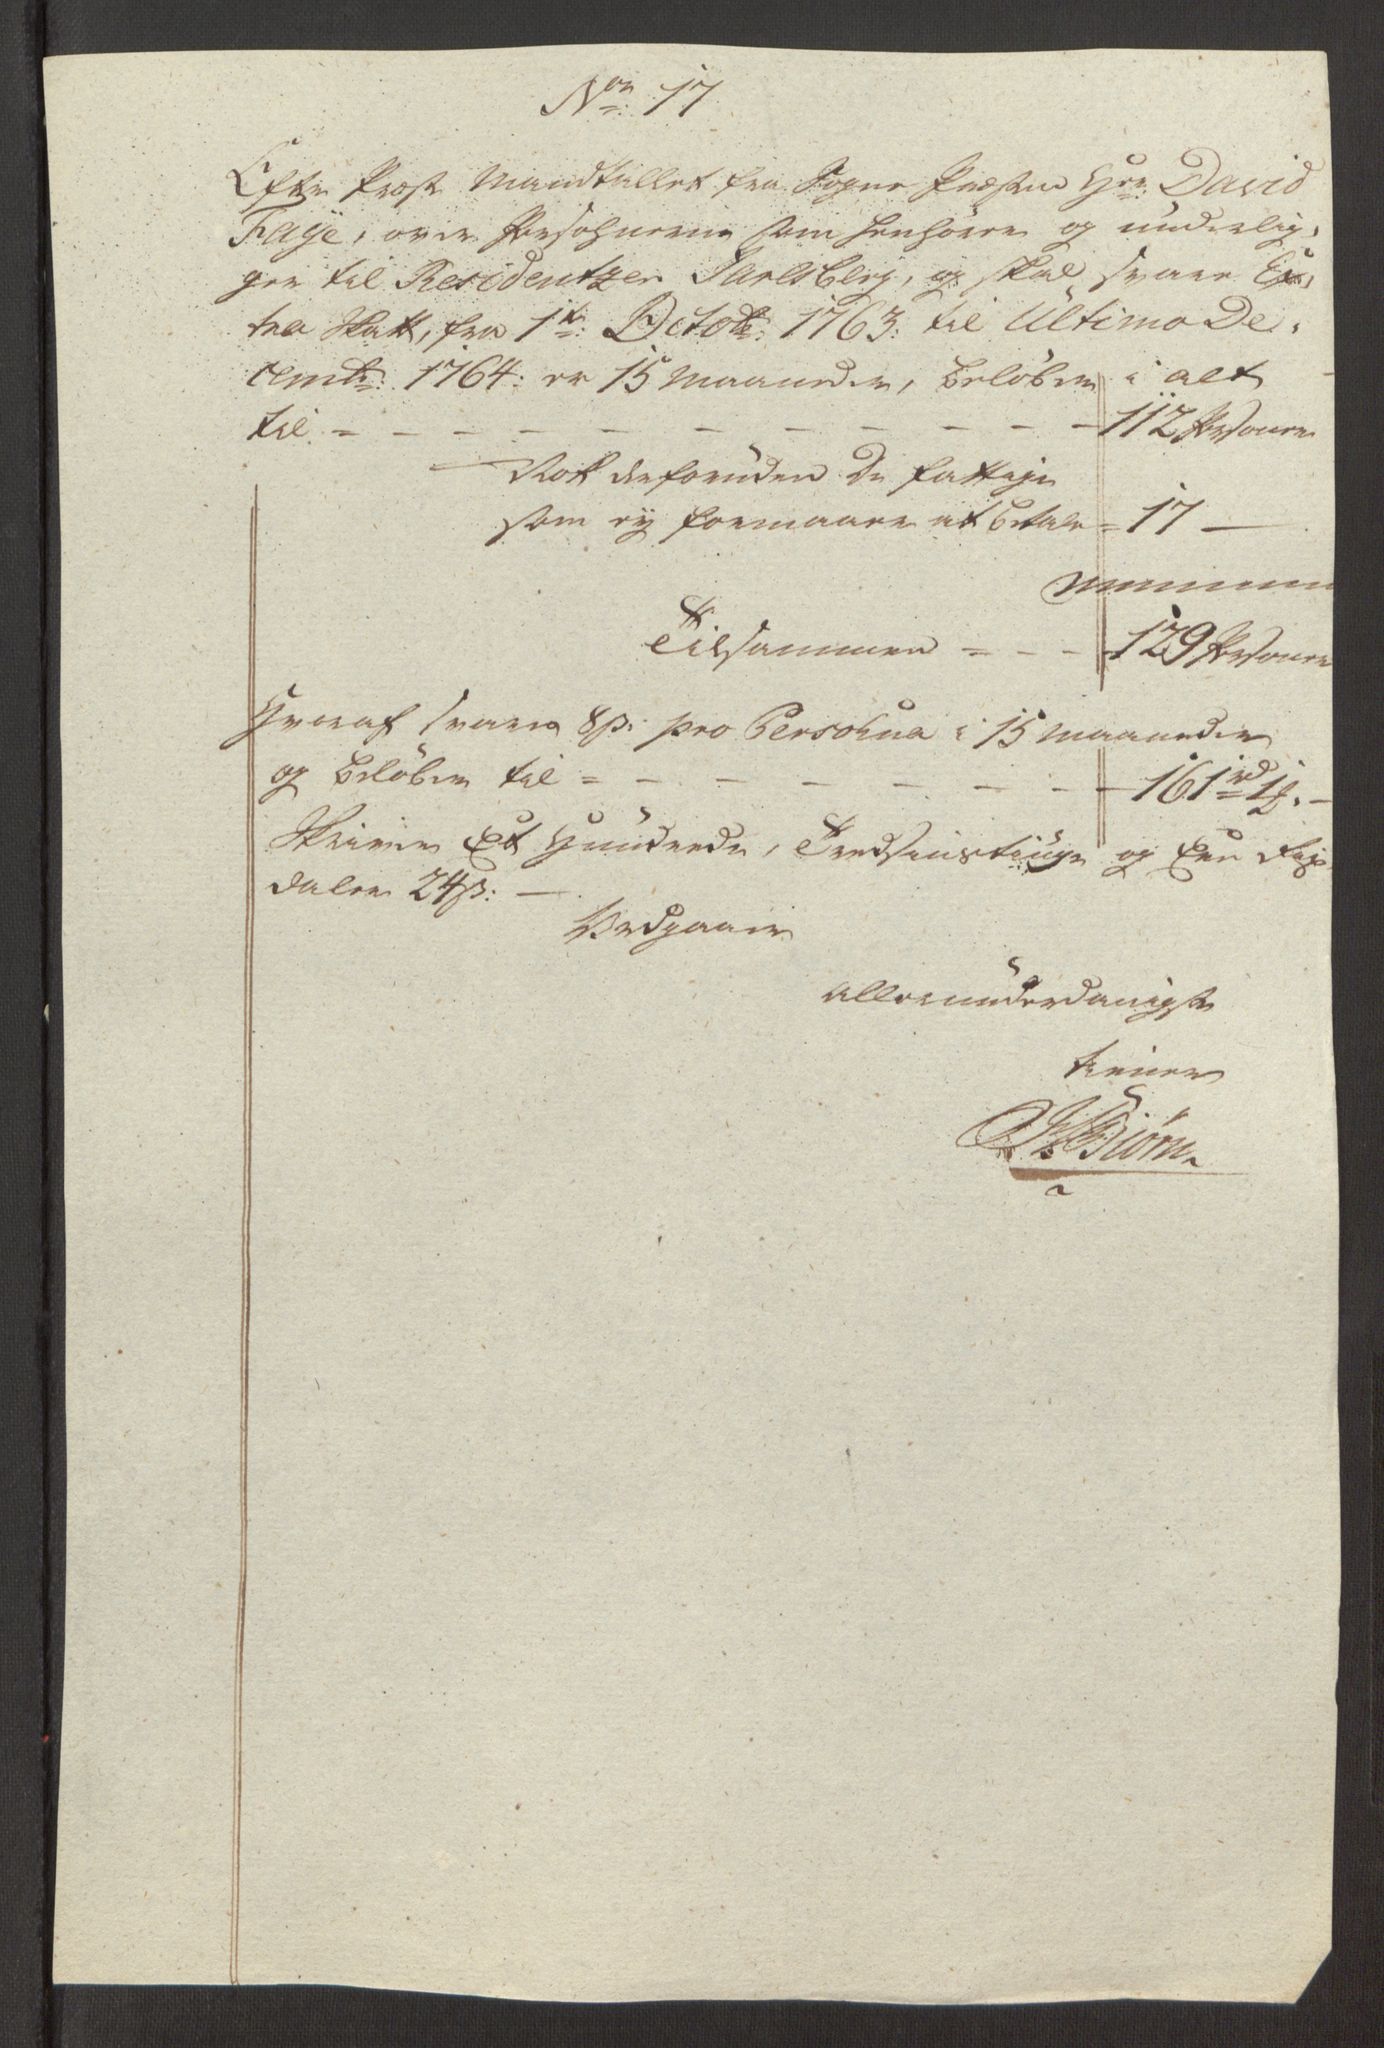 No: 17
Efter Præste Mandtallet fra Sogne Præsten Hrr: David
Faÿe, over Persohnerne som henhörer og underlig,
ger til Residentzen Jarlsberg, og skal svare Ex,
tra Skatt, fra 1te: Octobr: 1763: til Ultimo De,
cembr: 1764: er 15 Maaneder, belöber i alt
til = – – – – – – – – – – 112 Personer
Nok desforuden De fattige
som eÿ formaar at betale = 17 —
Tilsammen = – – 129 Personer
Hvoraf svares 8 s: pro Persohna i 15 Maaneder
og belöber til = – – – – – – – 161 rd 1 –
Skriver Et Hundrede, Tredsindstiuge og Een Rix
daler 24 s: —
Vedgaaer
allerunderdanigst
Biörn